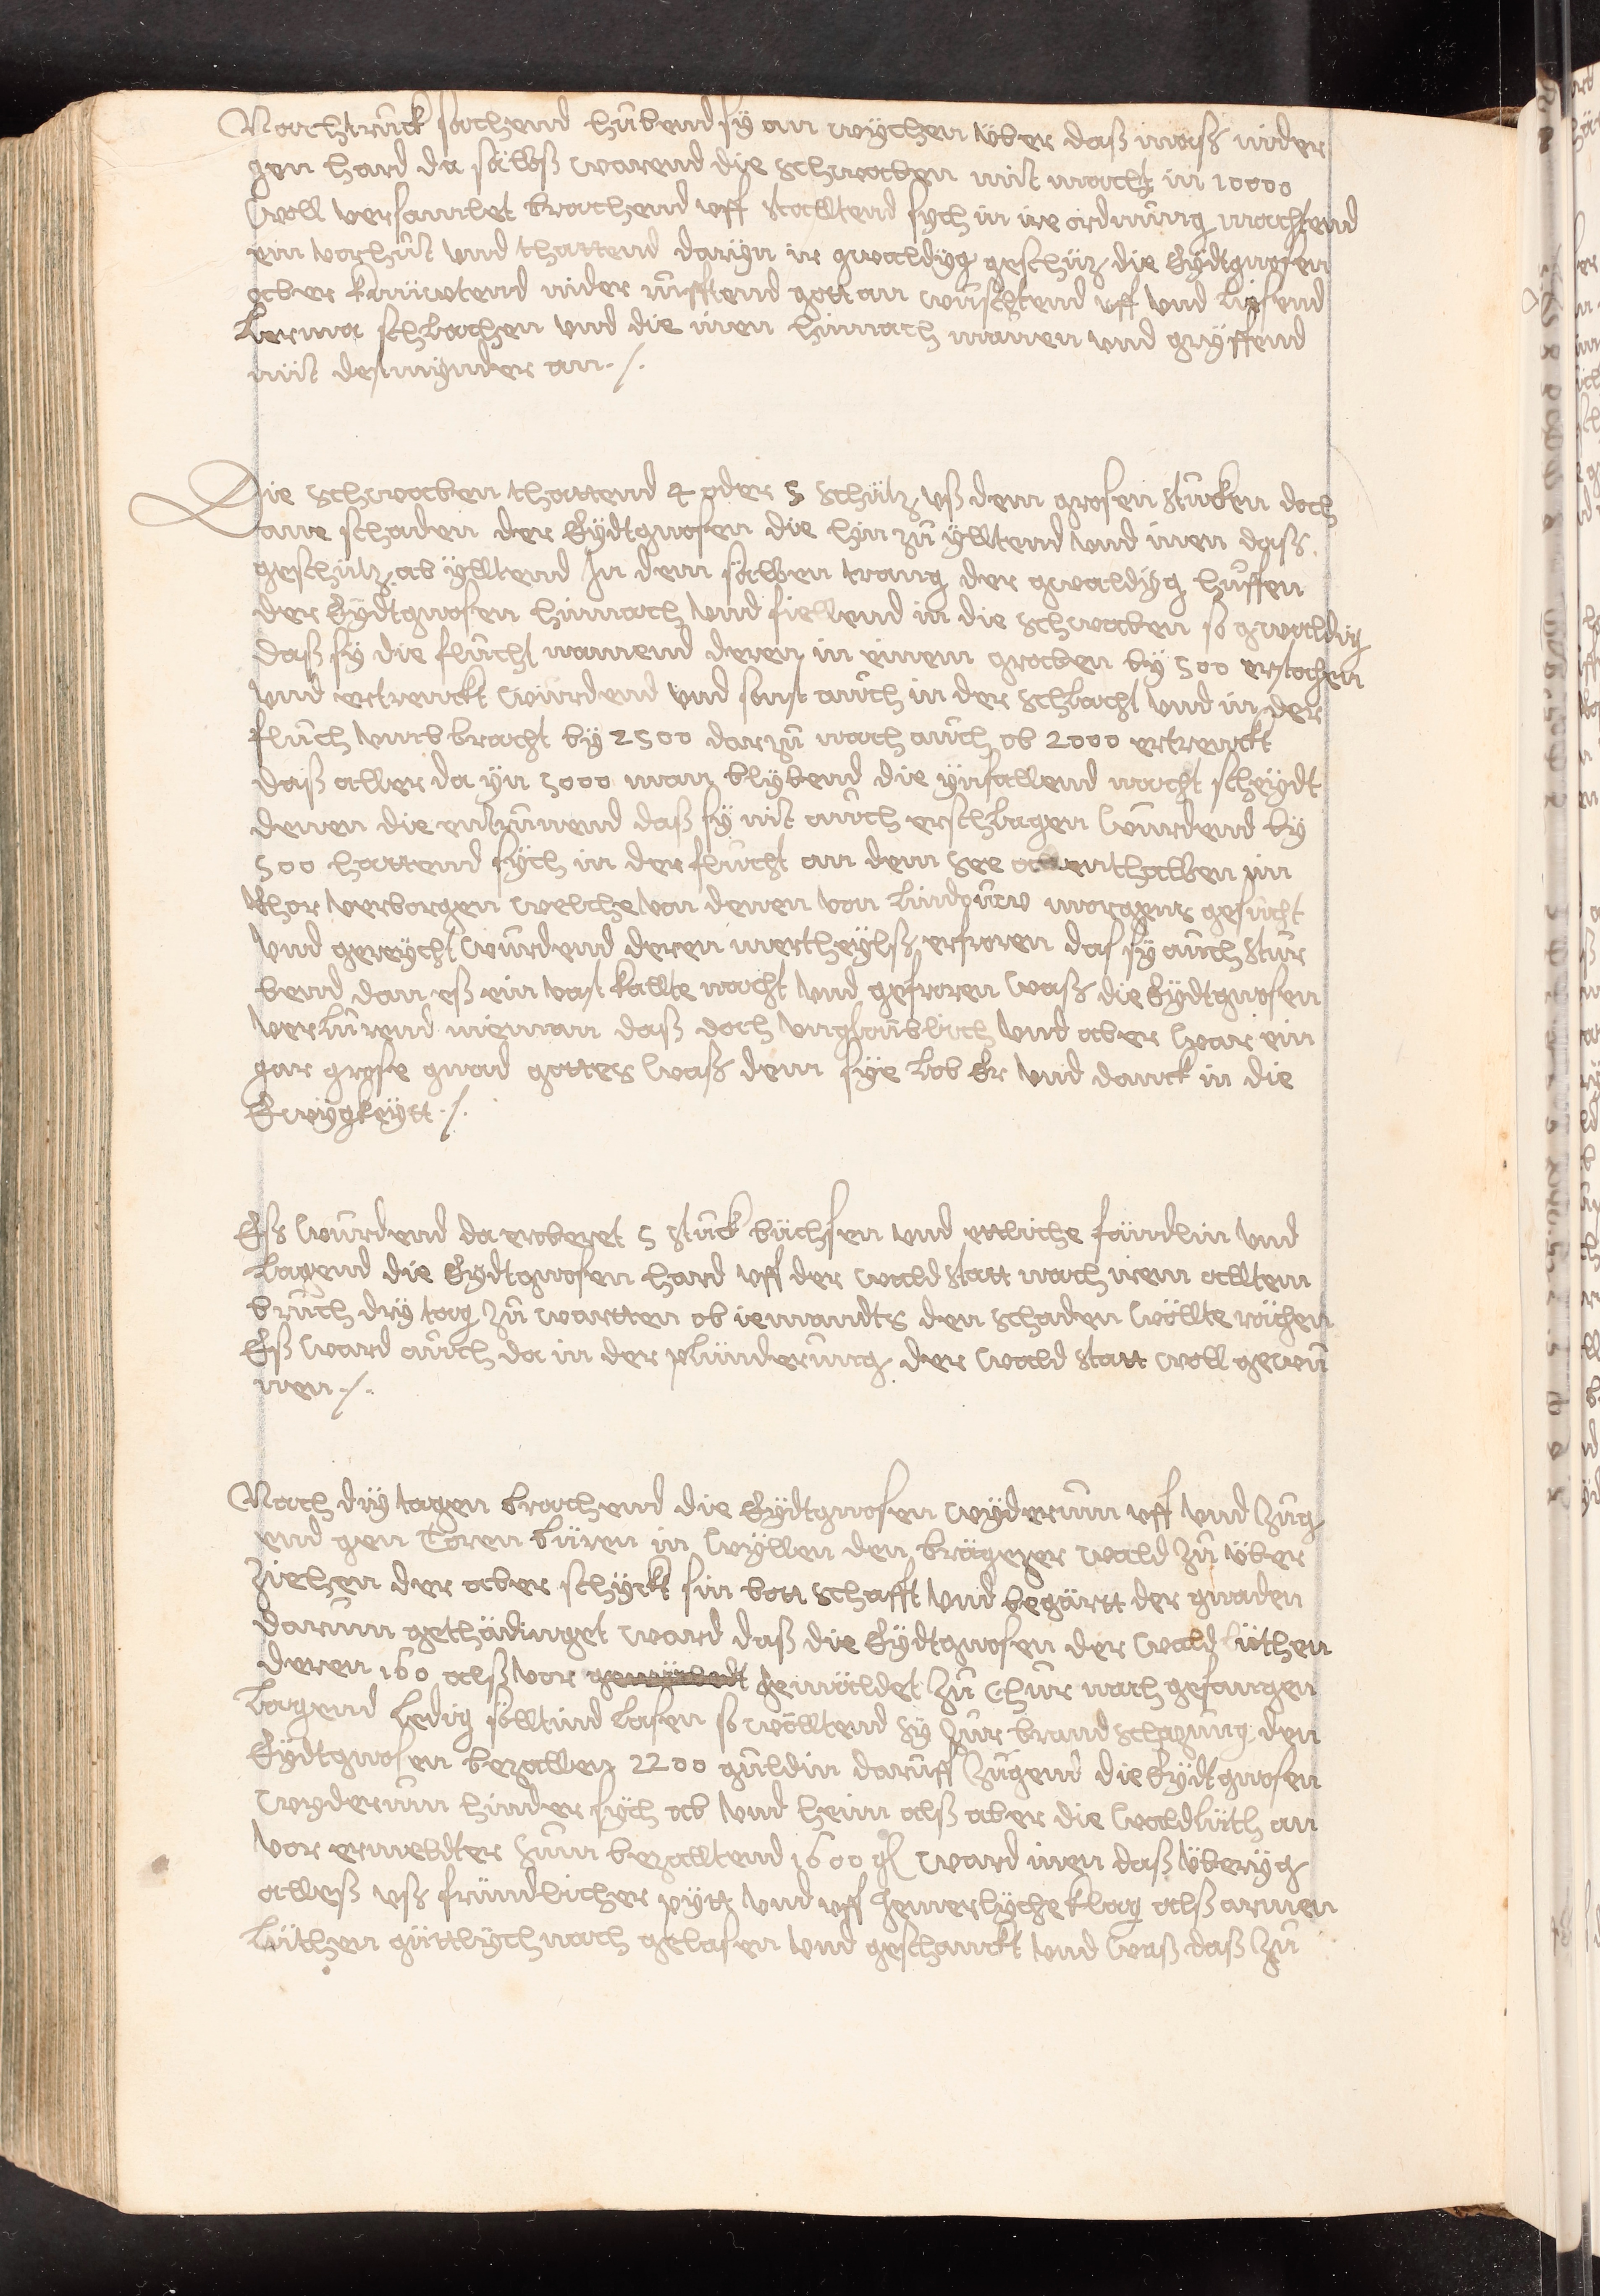 Nachtruck sachend hubend sy an wychen über daß moß nider
gen Hard da sälbß warend die Schwaben mit macht in 10000
woll versamlet brachend uff stalltend sych in ire ordnung machtend
ein vorhut und thattend daryn ir gwaldyg geschüz die Eydtgnosen
aber knüwtend nider rufftend gott an wuschtend uff und liesend
lerma schlachen und die iren hinnach manen und gryffend
nüt desmynder an ./.
Die Schwaben thattend 4 oder 5 schütz uß dem grosen stucken doch
ane schaden der Eydtgnosen die hin zu ylltend und inen daß
geschütz ab ylltend In dem sälben trang der gwaldyg huffen
der Eydtgnosen hinnach und fiellend in die Schwaben so gwaldig
daß sy die flucht namend deren in einem graben by 500 erstochen
und ertrenckt wurdend und sonst auch in der schlacht und in der
fluch umbbracht by 2500 darzu nach auch ob 2000 ertrenckt
daß aller da yn 5000 man blybend die ynfallend nacht scheydt
denen die entrunend daß sy nit auch erschlagen wurdend by
500 hattend sych in der flucht an dem See allenthalben im
Rhor verborgen welche von denen von Lindouw morgens gesucht
und gereycht wurdend deren mertheylß erfroren das sy auch stur
bend dan eß ein vast kallte nacht und gefroren waß die Eydtgnosen
verlurend nieman daß doch unglaublich und aber war ein
gar grose gnad gottes waß dem sye lob Er und danck in die
Ewygkeytt ./.
Eß wurdend da eroberet 5 stuck büchsen und ettliche fändlin und
lagend die Eydtgnosen Hard uff der waldstatt nach irem alltem
bruch dry tag zu wartten ob iemandts den schaden wöllte rächen
Eß ward auch da in der plünderung der waldstatt woll gewu
nen ./.
Nach dry tagen brachend die Eydtgnosen wyderum uff und zug
end gen Toren büren in wyllen den brägezer wald zu über
ziehen der aber schyckt sin bottschafft und begärtt der gnaden
darum gethädinget ward daß die Eydtgnosen der waldlüthen
deren 160 alß vor gemäldet zu Chur nach gefangen
lagend ledig söllttind lasen so wölltend sy zur brandschazung den
Eydtgnosen bezallen 2200 guldin daruff zugend die Eydtgnosen
wyderum hinder sych ab und heim alß aber die waldlüth an
vor ermeldter sum bezalltend 1600 gl ward inen daß überyg
alleß uß fründlicher pytt und uff jemerlyche klag alß armen
lüthen güttlych nach gelasen und geschenckt und waß daß zu